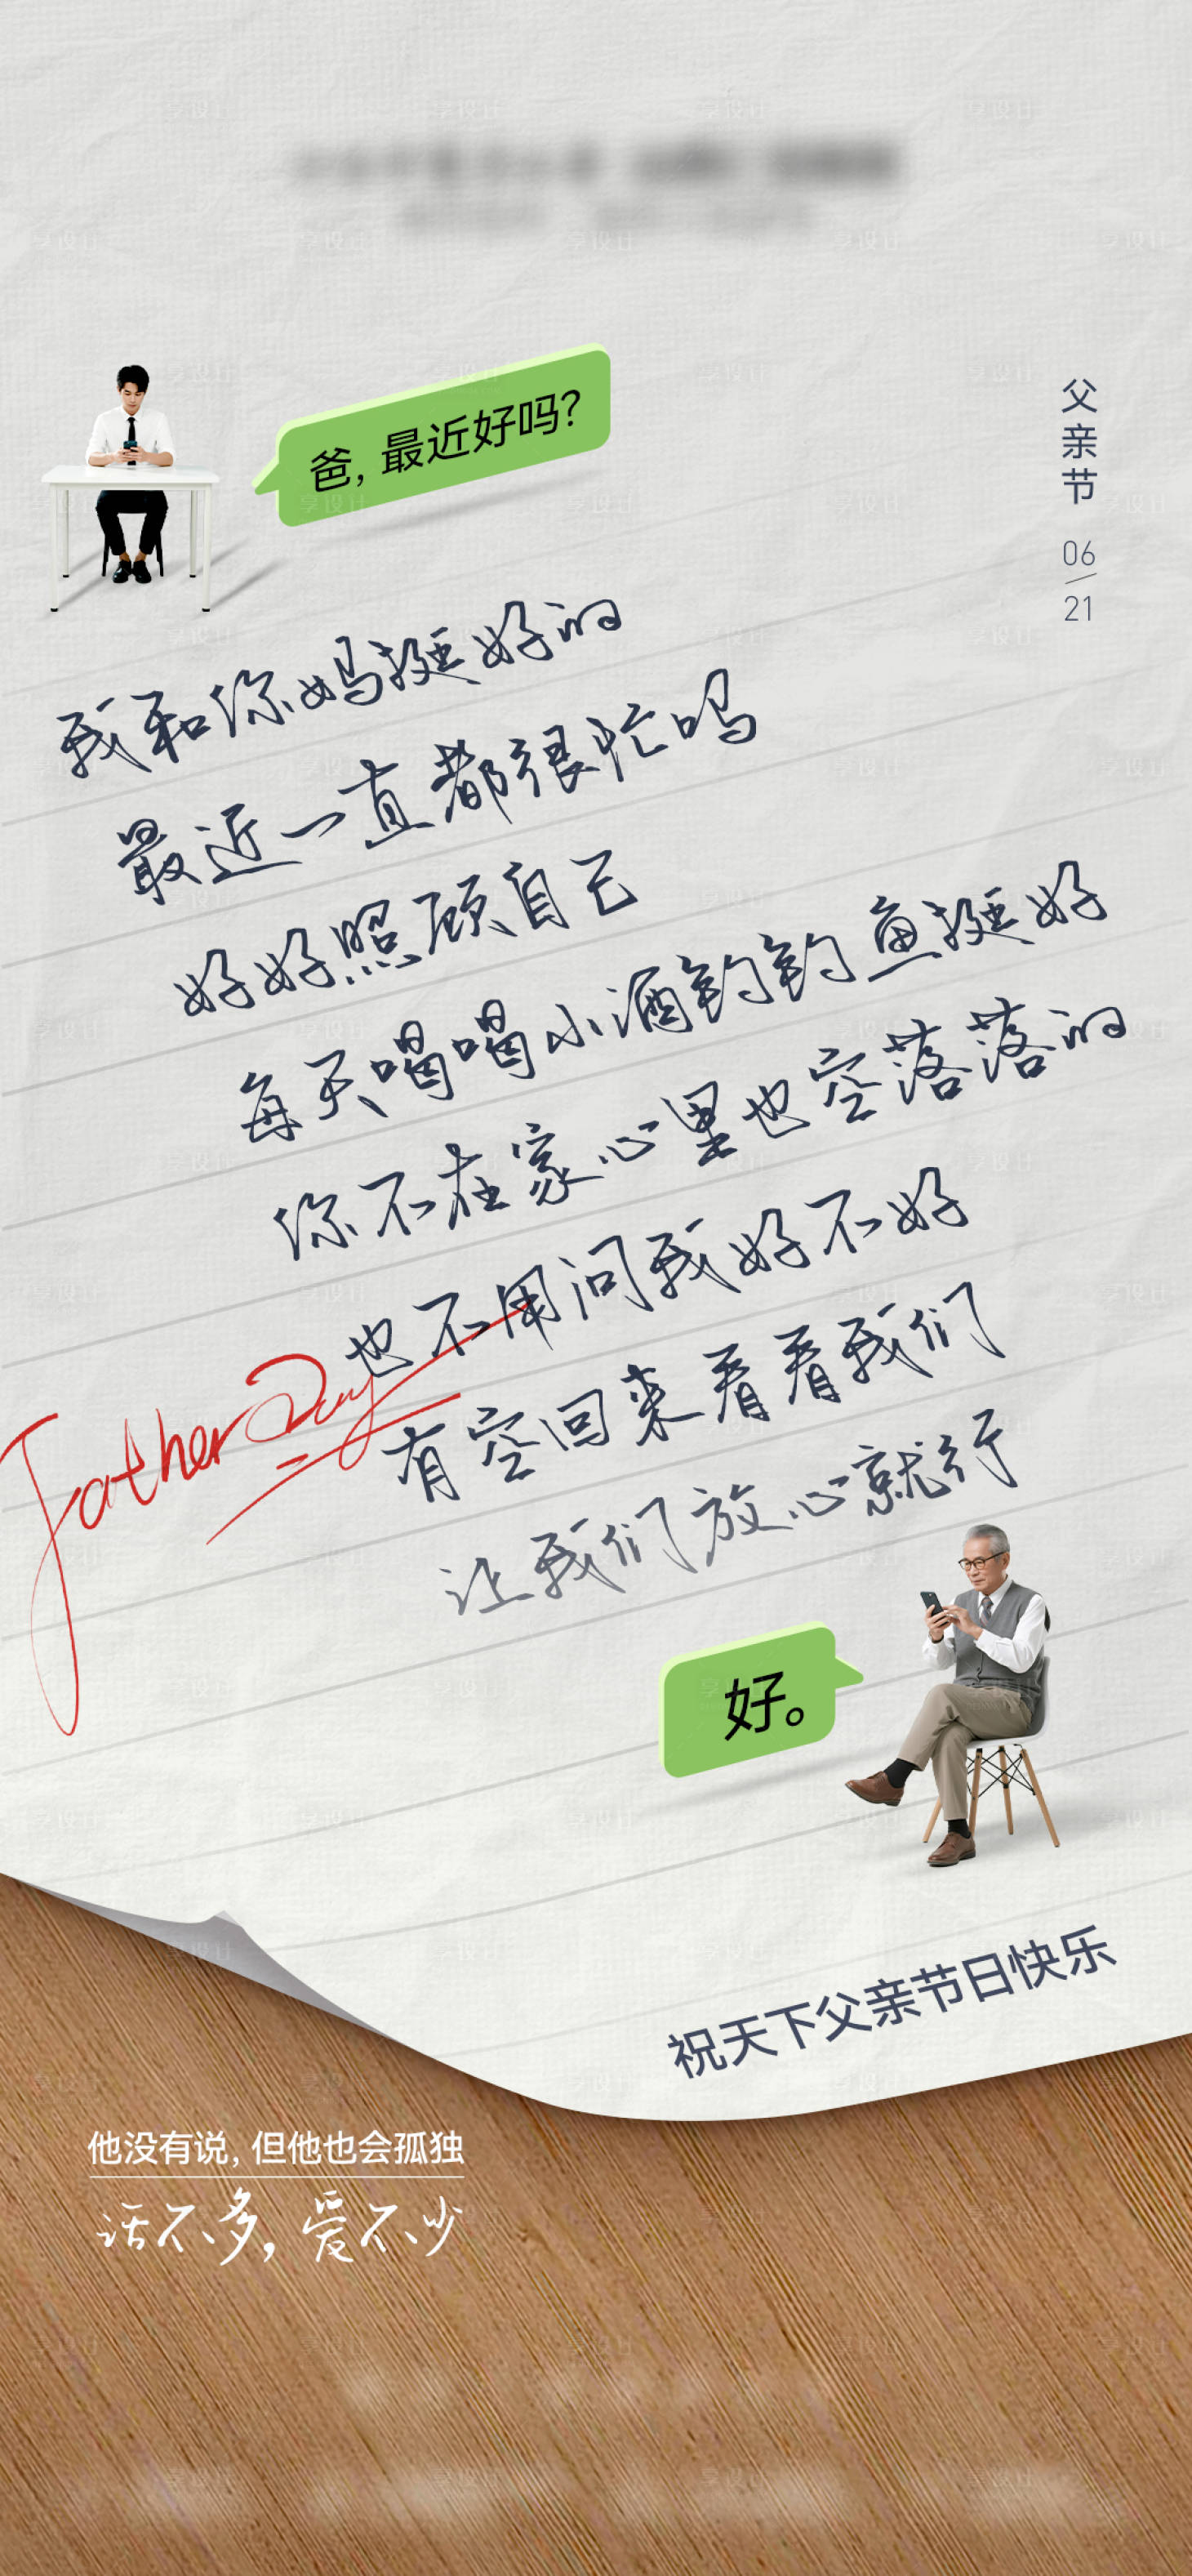 爸，最近好吗？
父亲节
06
21
我和你妈挺好的
最近一直都很忙吗
好好照顾自己
每天喝喝小酒钓钓鱼挺好
你不在家心里也空落落的
也不用问我好不好
有空回来看看我们
让我们放心就行
Father Day
好。
祝天下父亲节日快乐
他没有说，但他也会孤独
话不多，爱不少
享设计